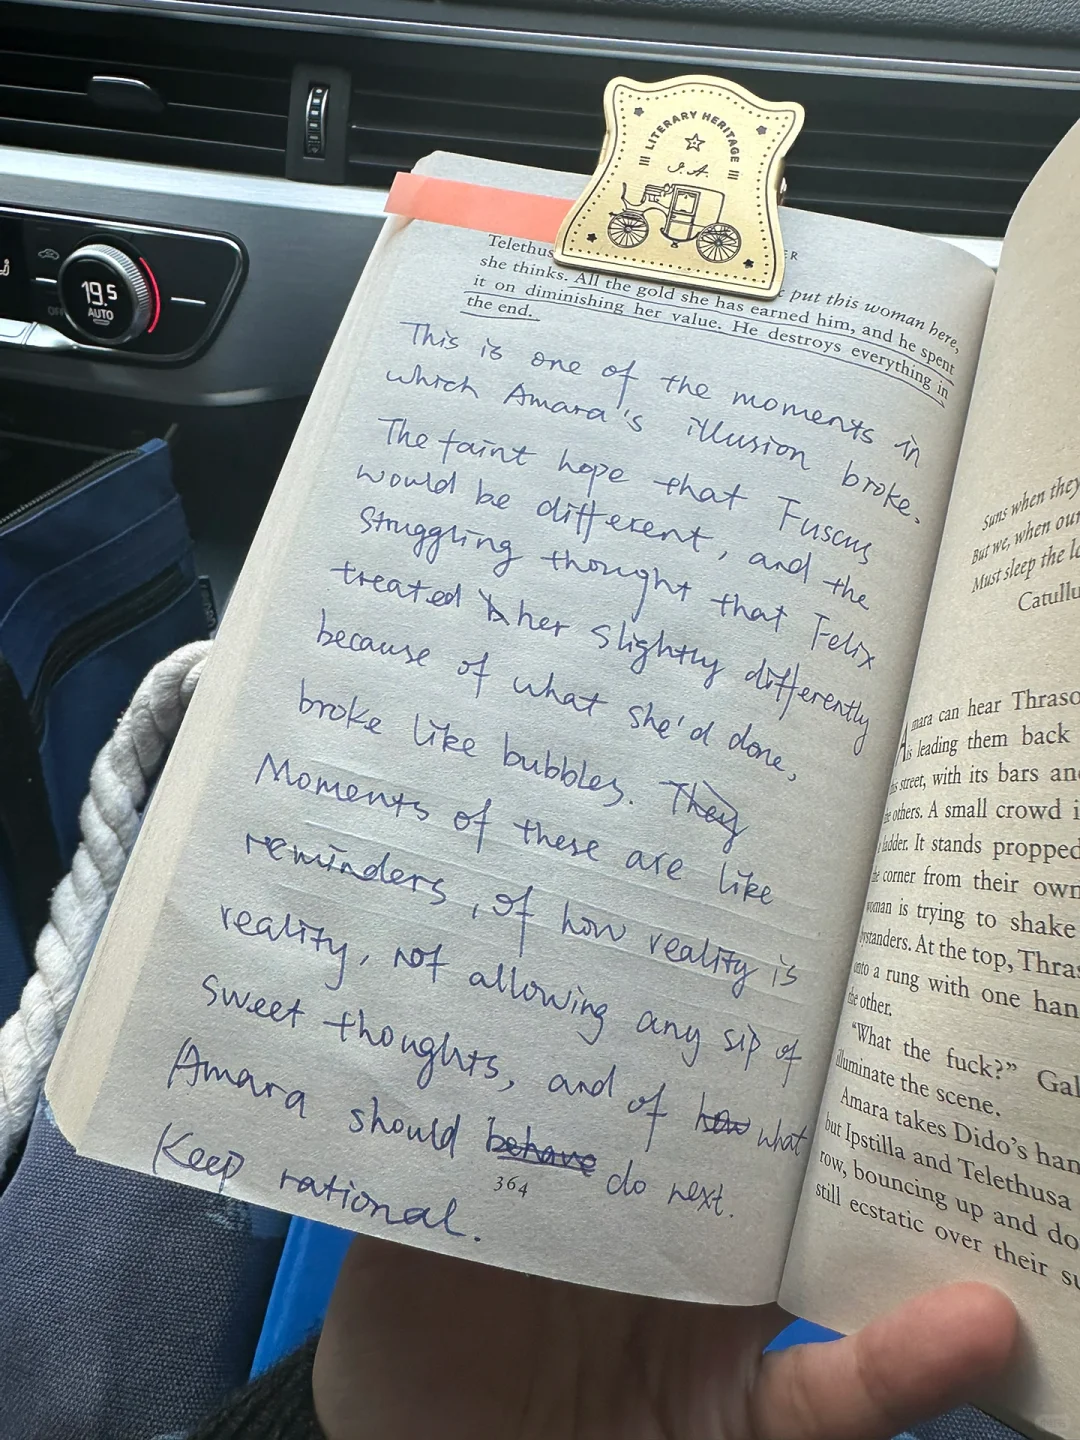 LITERARY HERITAGE
J.A.
19.5
AUTO
Telethus
put this woman here,
she thinks. All the gold she has earned him, and he spent
it on diminishing her value. He destroys everything in
the end.
This is one of the moments in
which Amara's illusion broke.
The faint hope that Fuscus
would be different, and the
struggling thought that Felix
treated her slightly differently
because of what she'd done,
broke like bubbles. They
Moments of these are like
reminders, of how reality is
reality, not allowing any sip of
sweet thoughts, and of how what
Amara should behave do next.
Keep rational.
364
Suns when they
But we, when our
Must sleep the
Catullu
Amara can hear Thraso
is leading them back
street, with its bars an
others. A small crowd i
ladder. It stands propped
corner from their own
woman is trying to shake
bystanders. At the top, Thras
onto a rung with one han
the other.
"What the fuck?" Gal
illuminate the scene.
Amara takes Dido's han
but Ipstilla and Telethusa
row, bouncing up and do
still ecstatic over their su